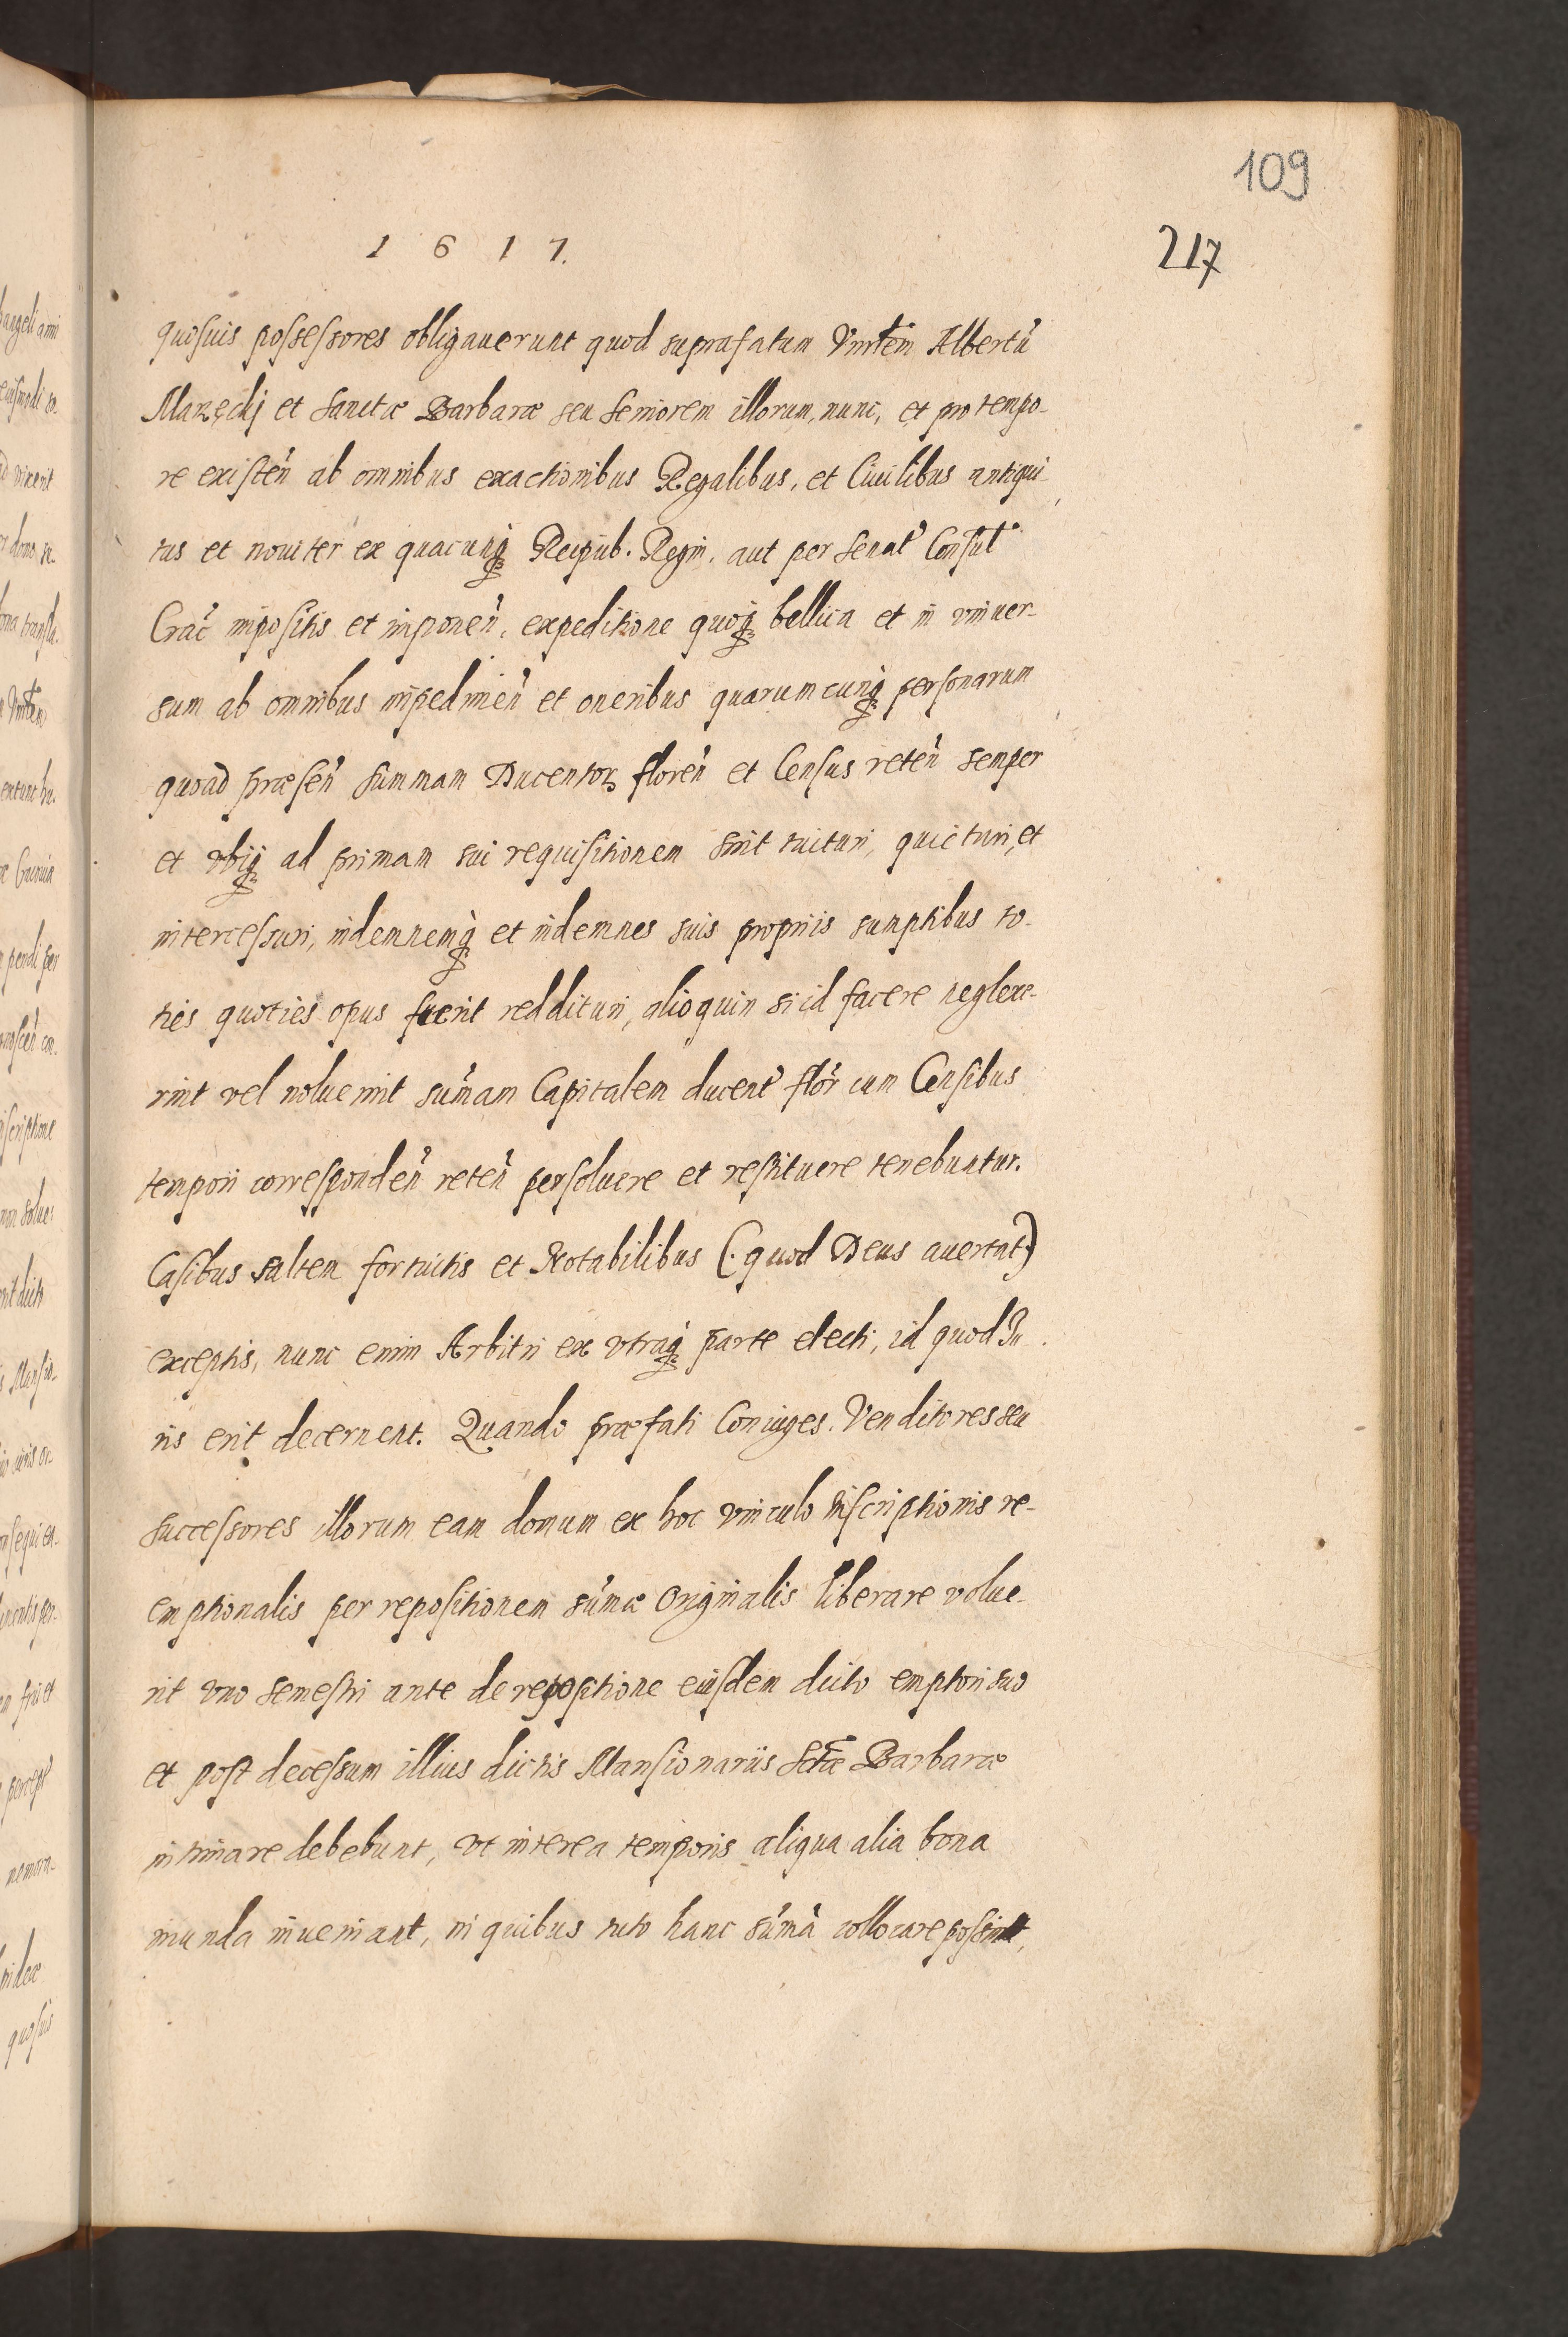 109
1617.
217
quosuis possessores obligauerunt quod suprafatum Vnrtem Albertũ
et Sanctæ Barbaræ seu Seniorem illorum, nunc, et pro tempo-
re existeñ ab omnibus exactionibus Regalibus, et Ciuilibus antiqui-
tus et nouiter ex quacunq Reipub. Regni, aut per Senat Consult
Crac impositis et imponeñ, expeditione quoq bellica et in vniuer-
sum ab omnibus impedimeñ et oneribus quarumcunq personarum
quoad præseñ summam Ducentor floreñ et Census reteñ semper
et vbiq ad primam sui requisitionem sint tuituri, quicturi, et
intercessuri, indemnemq et indemnes suis propriis sumptibus to-
ties quoties opus fuerit reddituri, alioquin si id facere neglexe-
rint vel noluerint sumam Capitalem ducent flor cum Censibus
tempori correspondeñ reteñ persoluere et restituere tenebuntur.
Casibus saltem fortuitis et Notabilibus (: quod Deus auertat:)
exceptis, nunc enim Arbitri ex vtraq parte electi, id quod Iu
ris erit decernent. Quando præfati Coniuges. Venditores seu
successores illorum eam domum ex hoc vinculo inscriptionis re-
emptionalis per repositionem sumæ Originalis liberare volue-
rit vno semestri ante de repositione eiusdem dicto emptori suo
et post decessum illius dictis Mansionariis Sctæ Barbaræ
intimare debebunt, vt interea temporis aliqua alia bona
munda inueniant, in quibus tuto hanc sumã collocare possint,